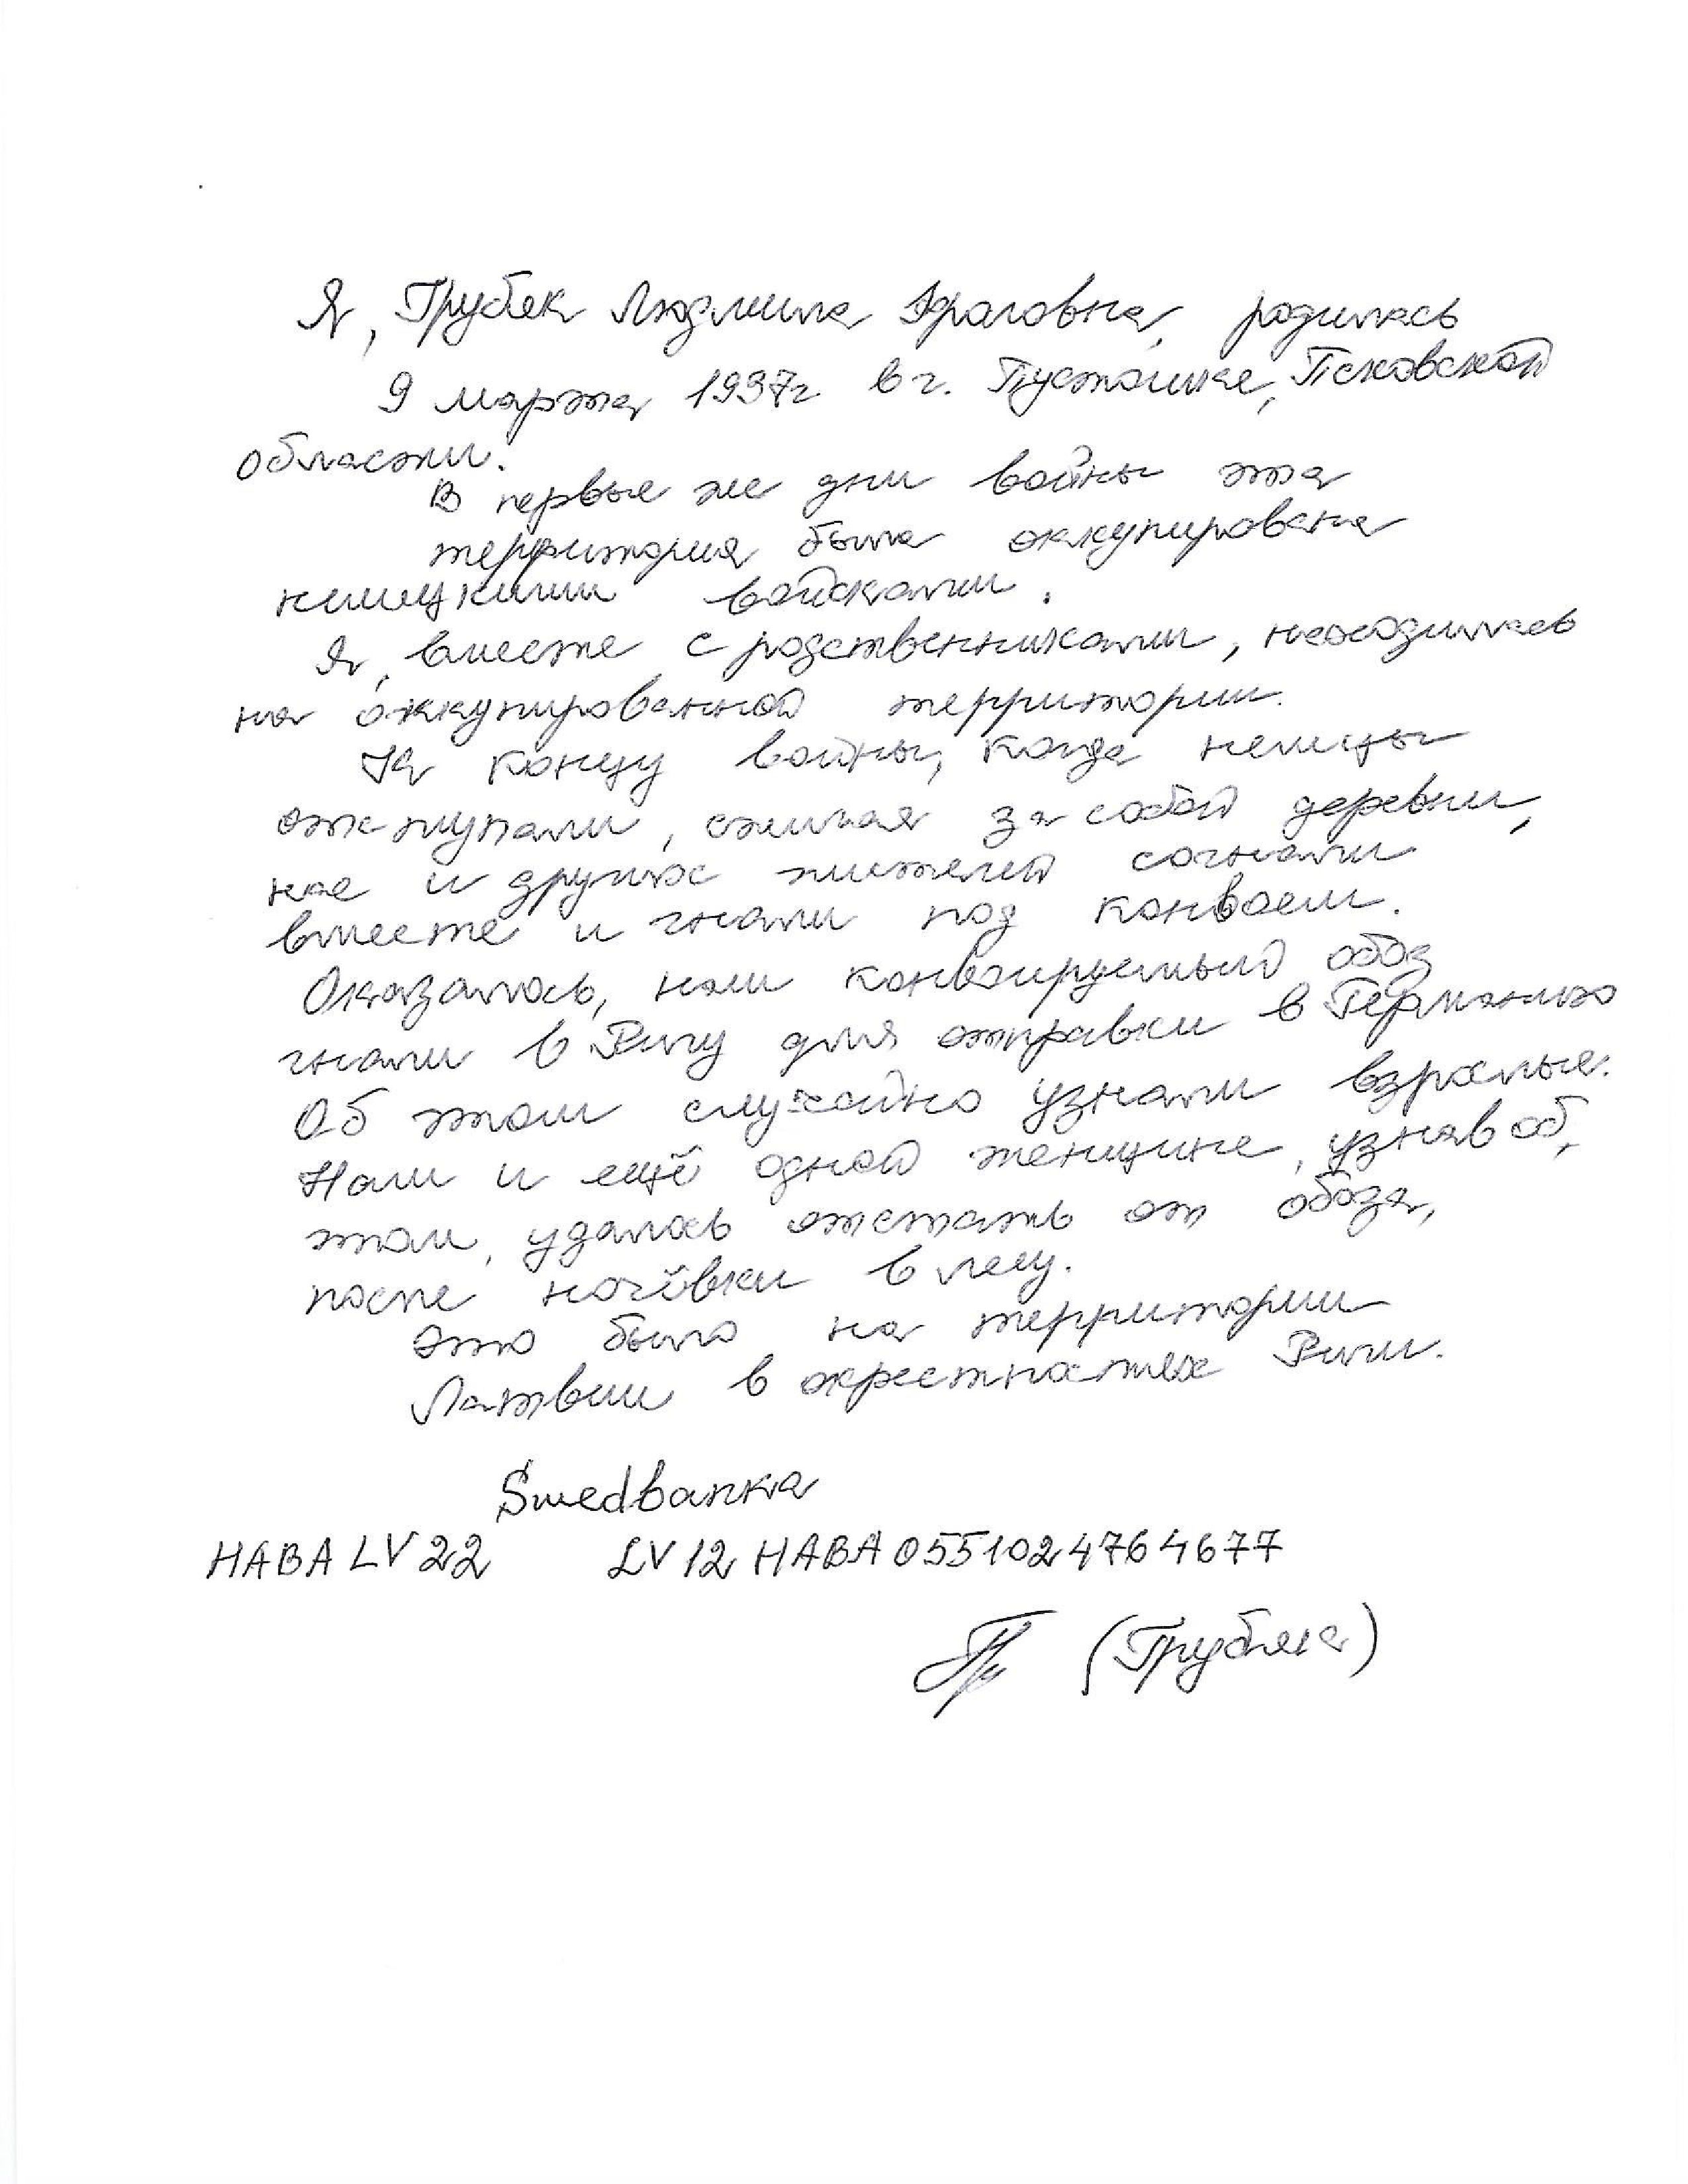 Я, Грубяк Людмила Фроловна, родилась
9 марта 1937г. в г. Пустошке, Псковской
области.
В первые же дни войны эта
территория была оккупирована
немецкими войсками.
Я, вместе с родственниками, находилась
на оккупированной территории.
К концу войны, когда немцы
отступали, сжигая за собой деревни,
нас и других жителей согнали
вместе и гнали под конвоем.
Оказалось, наш конвоируемый обоз
гнали в Ригу для отправки в Германию
Об этом случайно узнали взрослые.
Нам и ещё одной женщине, узнав об
этом, удалось отстать от обоза,
после ночёвки в лесу.
Это было на территории
Латвии в окрестностях Риги.
Swedbanka
HABA LV 22 LV 12 HABA 0551024764677
(Грубяка)